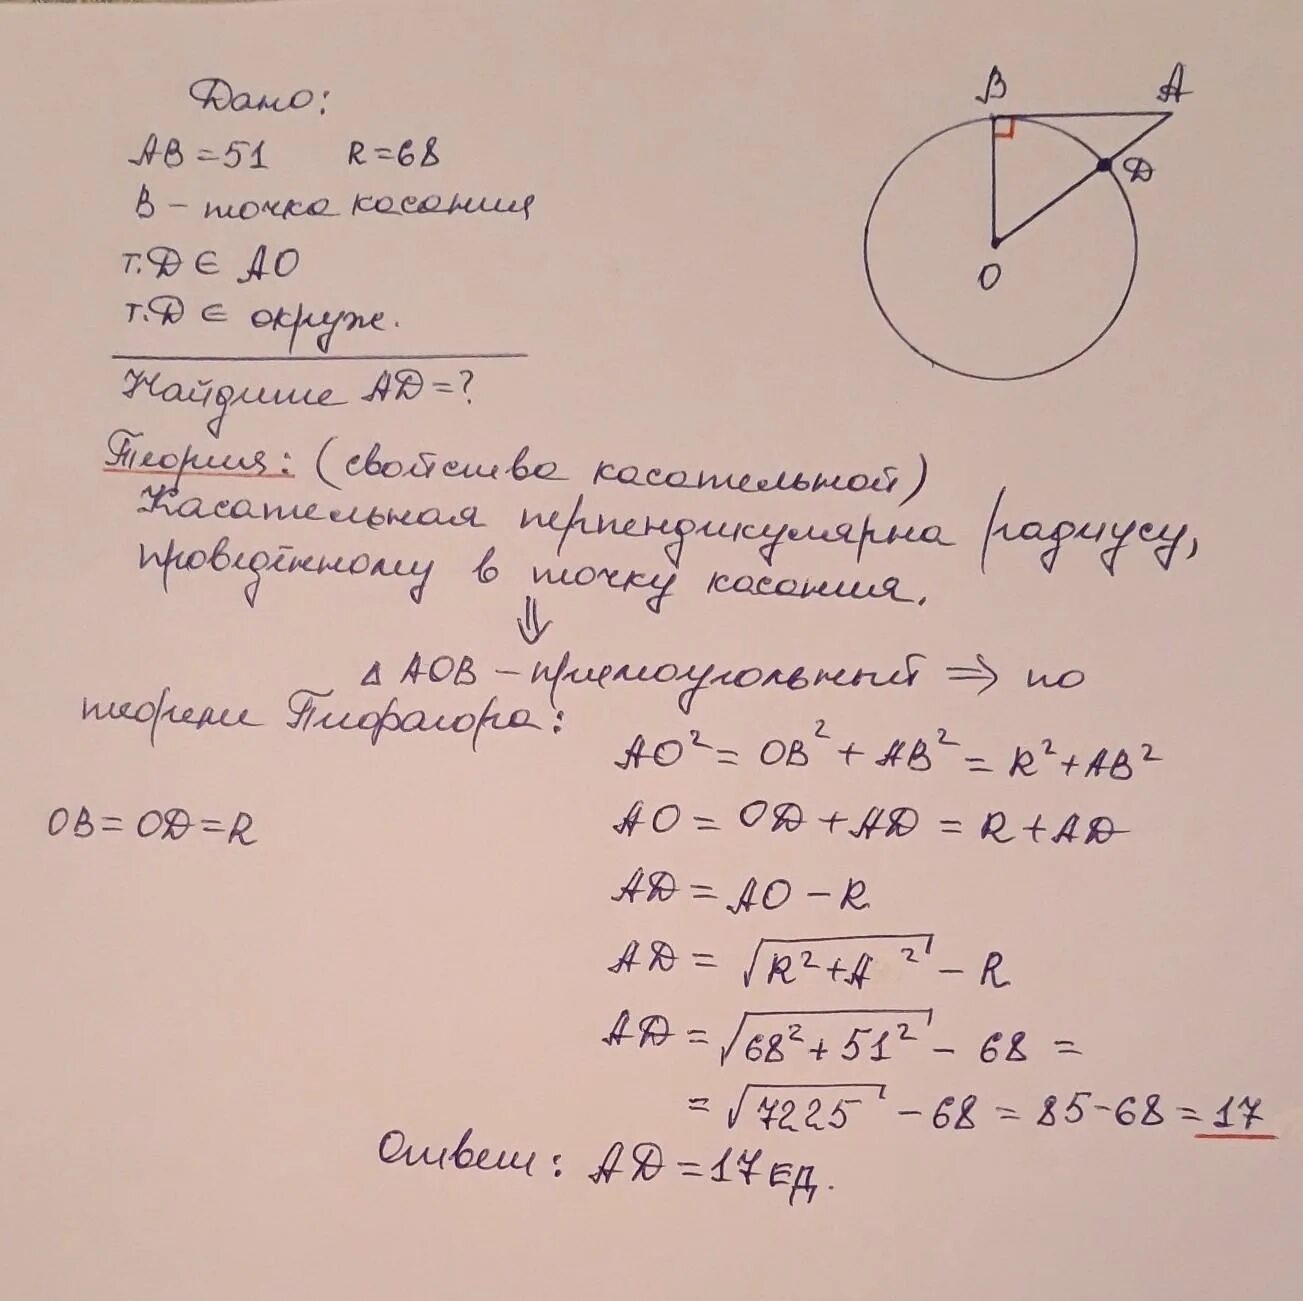 Дано:
AB = 51 R = 68
B – точка касания
т. D ∈ AO
т. D ∈ окруж.
Найдите AD = ?
B A
D
O
Теория: (свойства касательной)
Касательная перпендикулярна радиусу,
проведённому в точку касания.
⇓
△ AOB – прямоугольный ⇒ по
теореме Пифагора:
AO² = OB² + AB² = R² + AB²
OB = OD = R
AO = OD + AD = R + AD
AD = AO – R
AD = √(R² + A ²) – R
AD = √(68² + 51²) – 68 =
= √7225 – 68 = 85 – 68 = 17
Ответ: AD = 17 ед.